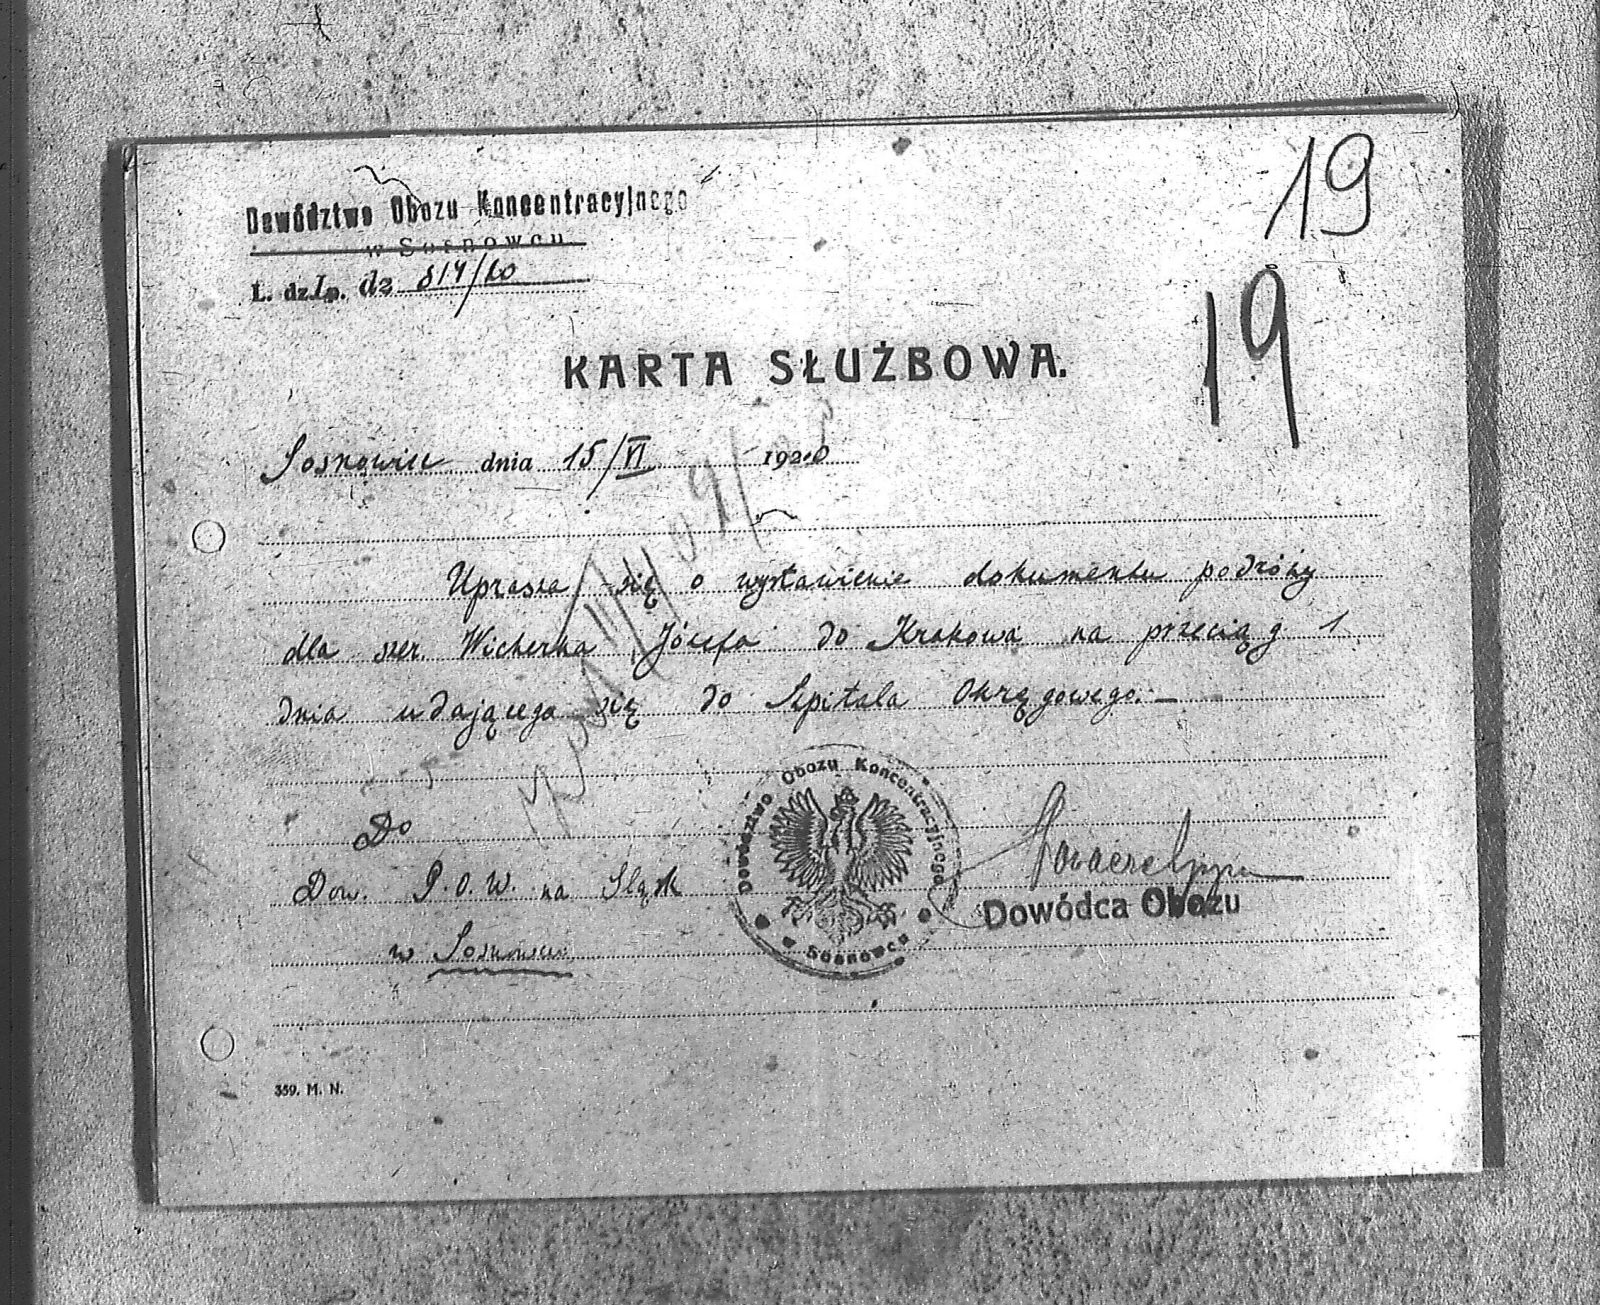 19
Dowództwo Obozu Koncentracyjnego
w Sosnowcu.
19
L. dz. Lp. dz 514/20
KARTA SŁUŻBOWA.
Sosnowiec dnia 15/VI 1920
Uprasza się o wystawienie dokumentu podróży
dla szer. Wicherka Józefa do Krakowa na przeciąg 1
dnia udającego się do Szpitala Okręgowego.—
Do
Dow. P.O.W. na Śląsk
w Sosnowcu
Dowództwo Obozu Koncentracyjnego
Sosnowcu
Dowódca Obozu
359. M. N.